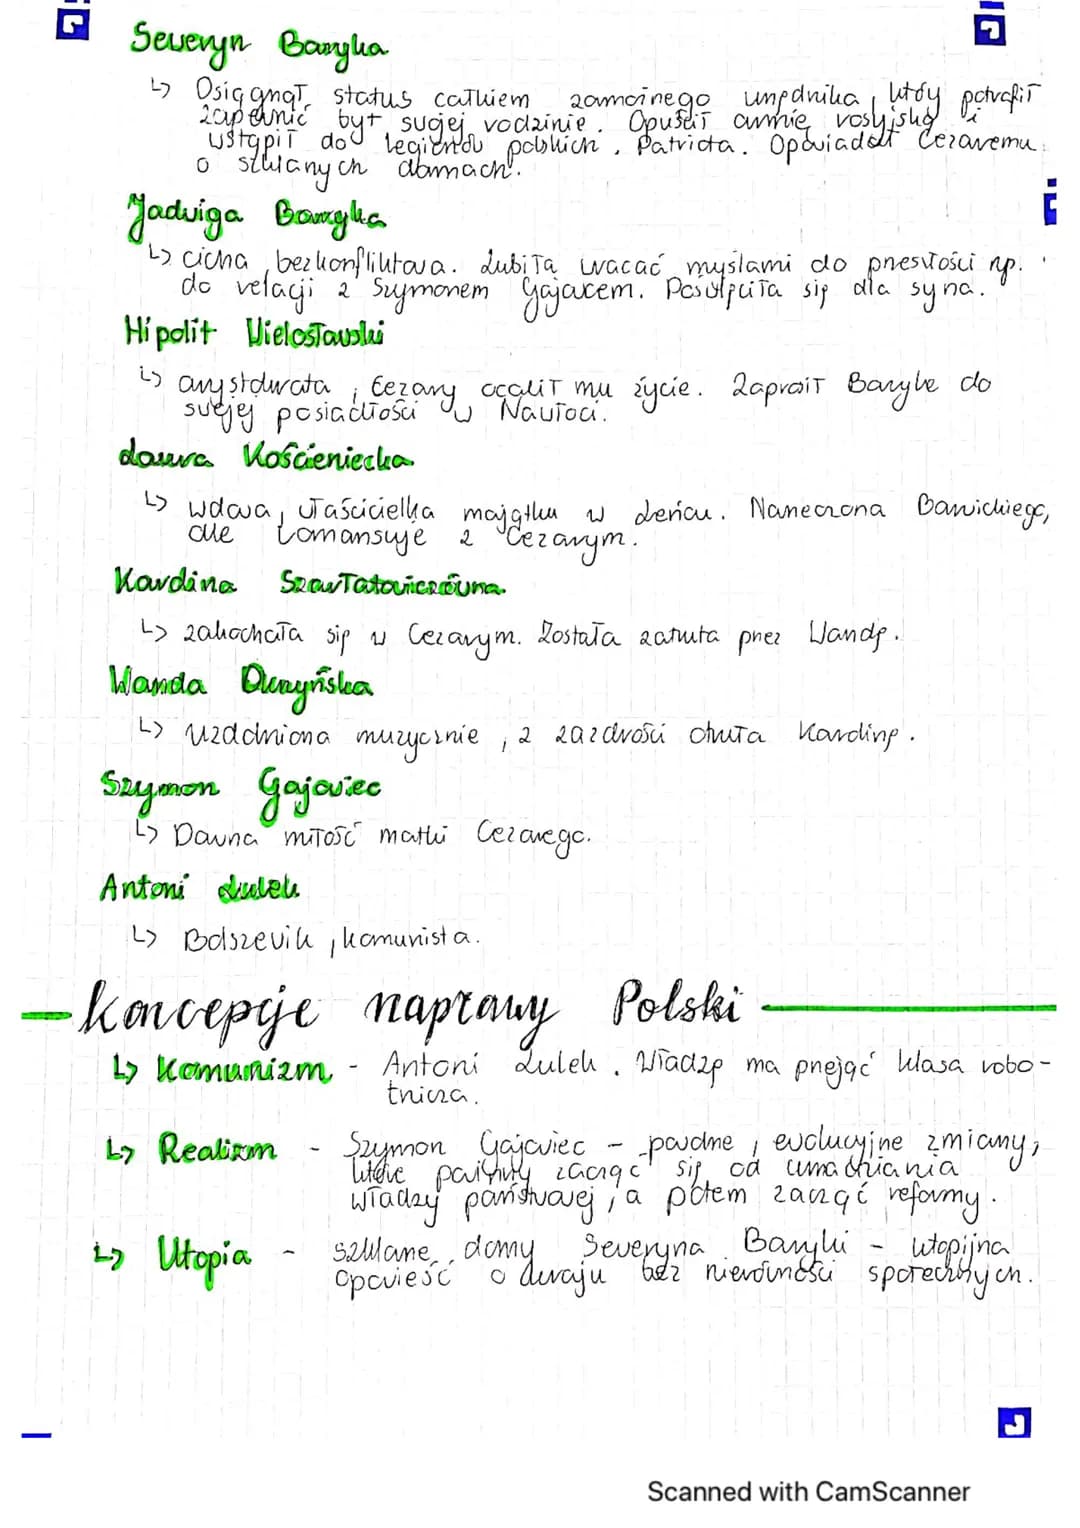 Seweryn Baryka
↳ Osiągnął status całkiem zamożnego urzędnika, który potrafił
zapewnić byt swojej rodzinie. Opuścił armię rosyjską i
wstąpił do legionów polskich. Patriota. Opowiadał Cezaremu
o szklanych domach.
Jadwiga Baryka
↳ cicha, bezkonfliktowa. Lubiła wracać myślami do przeszłości np.
do relacji z Szymonem Gajowcem. Poświęciła się dla syna.
Hipolit Wielosławski
↳ arystokrata, Cezary ocalił mu życie. Zaprosił Barykę do
swojej posiadłości w Nawłoci.
Laura Kościeniecka
↳ wdowa, właścicielka majątku w Leńcu. Narzeczona Barwickiego,
ale romansuje z Cezarym.
Karolina Szarłatowiczówna
↳ zakochała się w Cezarym. Została zatruta przez Wandę.
Wanda Okrzyńska
↳ uzdolniona muzycznie, z zazdrości otruła Karolinę.
Szymon Gajowiec
↳ Dawna miłość matki Cezarego.
Antoni Lulek
↳ Bolszewik, komunista.
Koncepcje naprawy Polski
↳ Komunizm - Antoni Lulek. Władzę ma przejąć klasa robo-
tnicza.
↳ Realizm - Szymon Gajowiec - powolne, ewolucyjne zmiany,
które powinny zacząć się od umacniania
władzy państwowej, a potem zacząć reformy.
↳ Utopia - szklane domy Seweryna Baryki - utopijna
opowieść o kraju bez nierówności społecznych.
Scanned with CamScanner